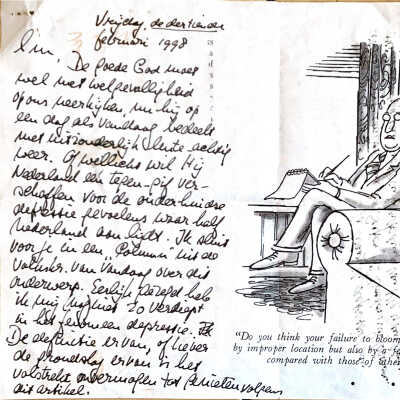 Vrijdag, de dertiende
februari 1998
De goede God moet
wel met welgevalligheid
op ons neerkijken, nu hij op
een dag als vandaag bedeelt
met uitzonderlijk lente-achtig
weer. Of wellicht wil Hij
Nederland een tegen-gif ver-
schaffen voor de onderhuidse
depressie gevoelens waar half
Nederland aan lijdt. Ik sluit
voor je in een "Column" uit de
Volkskr. van Vandaag over dit
onderwerp. Eerlijk gezegd heb
ik mij nog niet zo verdiept
in het fenomeen depressie.
De definitie ervan, of liever
de grondslag ervan is het
volstrekt onvermogen tot genieten volgens
dit artikel.
"Do you think your failure to bloom
by improper location but also by a
compared with those of other